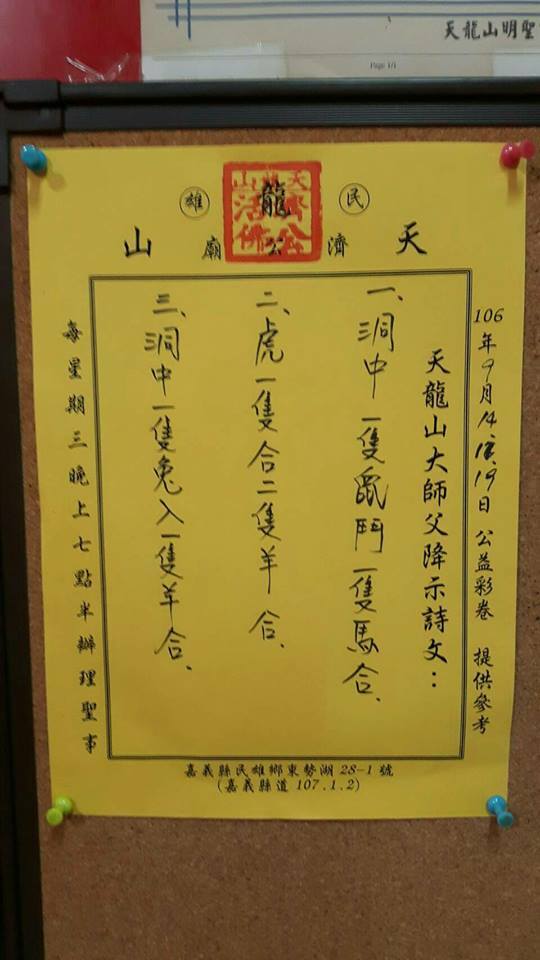 天龍山明聖
Page 1/1
民雄
天龍山
濟公廟
天龍山濟公活佛
106年9月14 19日 公益彩卷 提供參考
天龍山大師父降示詩文：
一、洞中一隻鼠鬥一隻馬合、
二、虎一隻合二隻羊合、
三、洞中一隻兔入一隻羊合、
每星期三晚上七點半辦理聖事
嘉義縣民雄鄉東勢湖 28-1 號
(嘉義縣道 107.1.2)